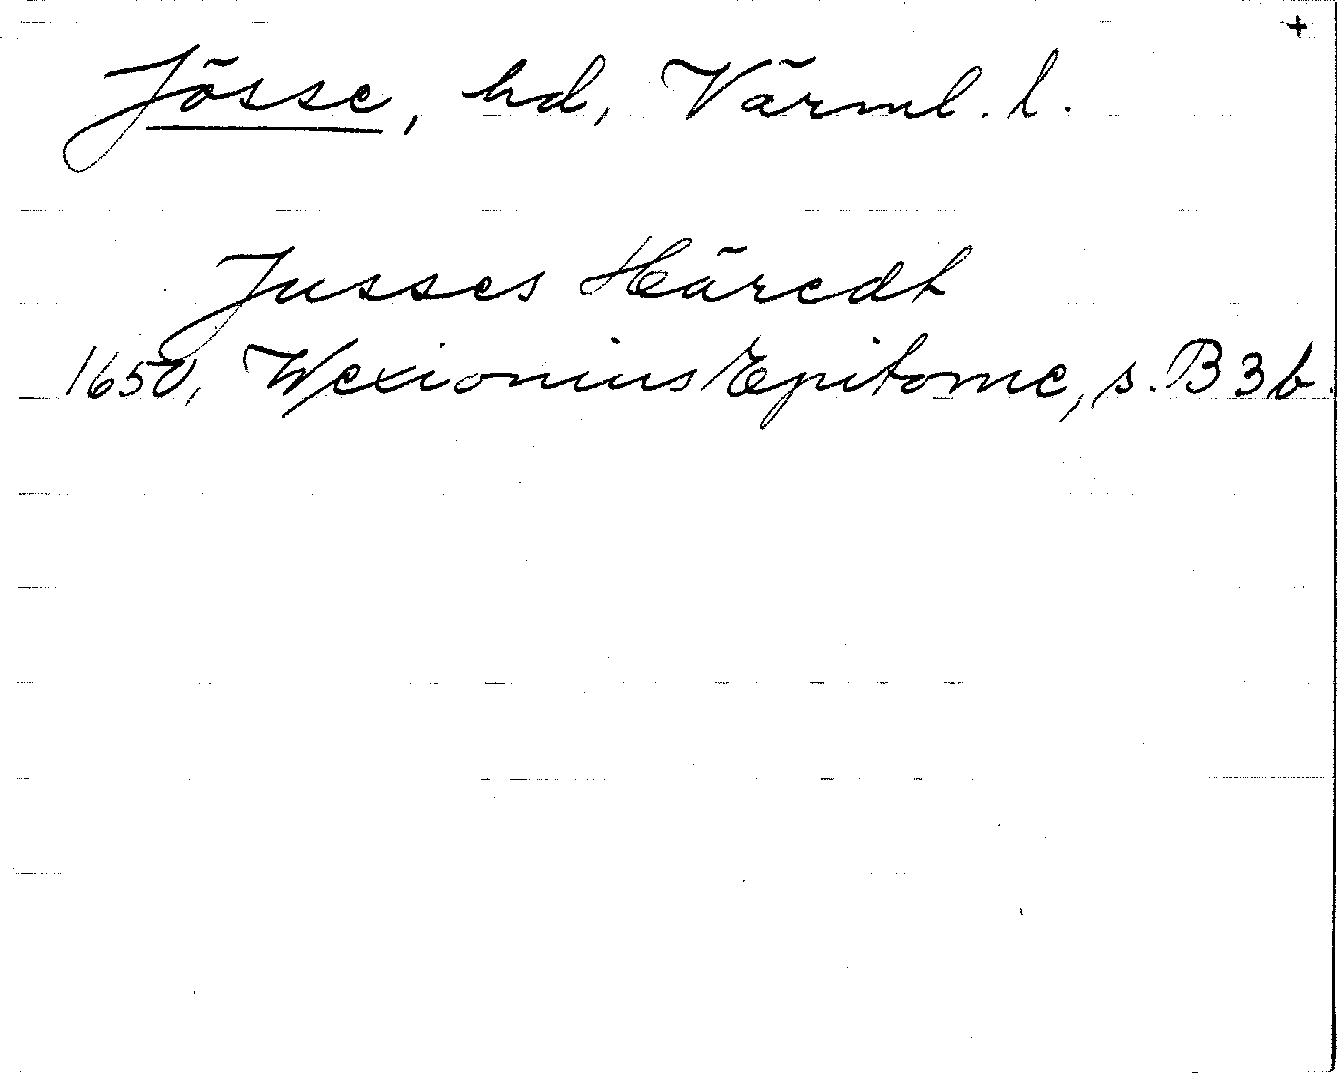 +
Jösse, hd, Värml. l.
Jusses Häredt
1650, Wexionius Epitome, s. B 3 b.